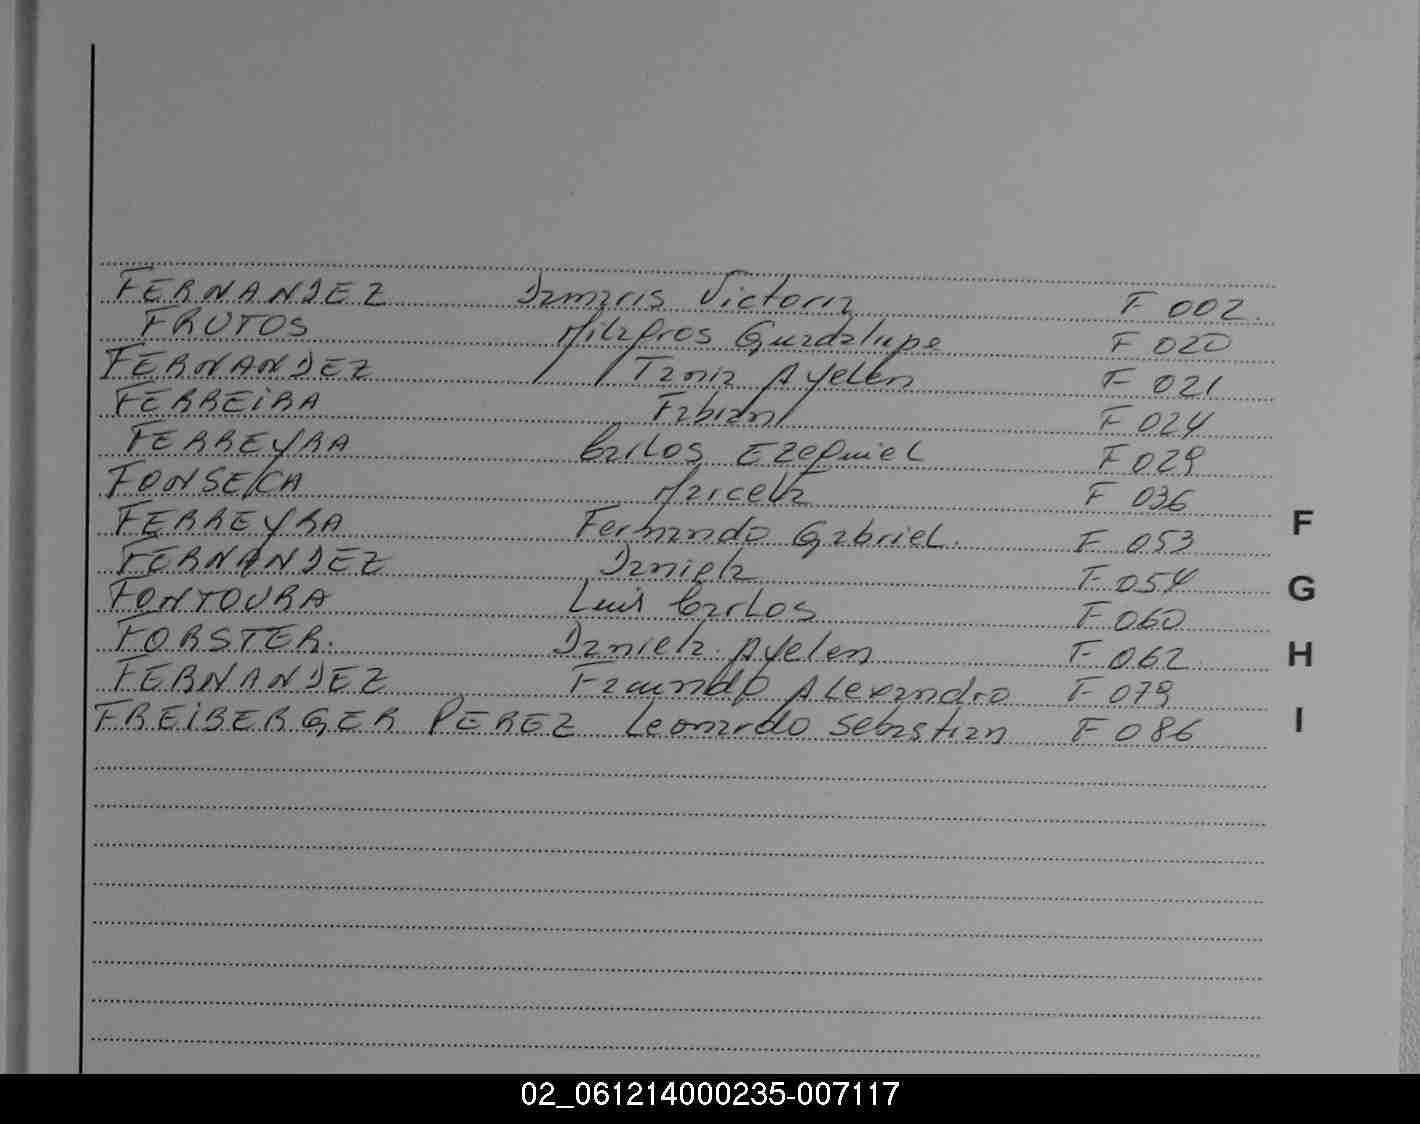 FERNANDEZ Damaris Victoria F 002.
FRUTOS Milagros Guadalupe F 020
FERNANDEZ Tania Ayelen F 021
FERREIRA Fabian F 024
FERREYRA Carlos Ezequiel F 029
FONSECA Marcela F 036
FERREYRA Fernando Gabriel. F 053
FERNANDEZ Daniela F 054
FONTOURA Luis Carlos F 060
FORSTER. Daniela Ayelen F 062
FERNANDEZ Facundo Alexandro F 079
FREIBERGER PEREZ Leonardo Sebastian F 086
F
G
H
I
02_061214000235-007117